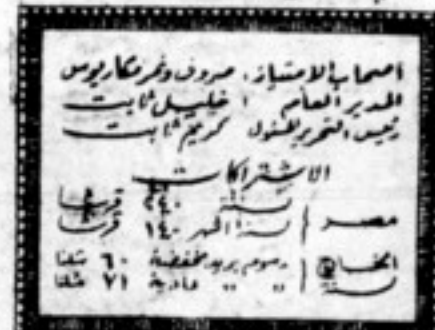 اصحاب الامتياز : صروف ونمر ومكاريوس
المدير العام : خليل ثابت
رئيس التحرير المسئول كريم ثابت
الاشتراكات
مصر سنة ٢٤٠ قرشا
١٤٠ قرشا
الخارج رسوم بريد مخفضة ٦٠ شلنا
سنة " " عادية ٧١ شلنا